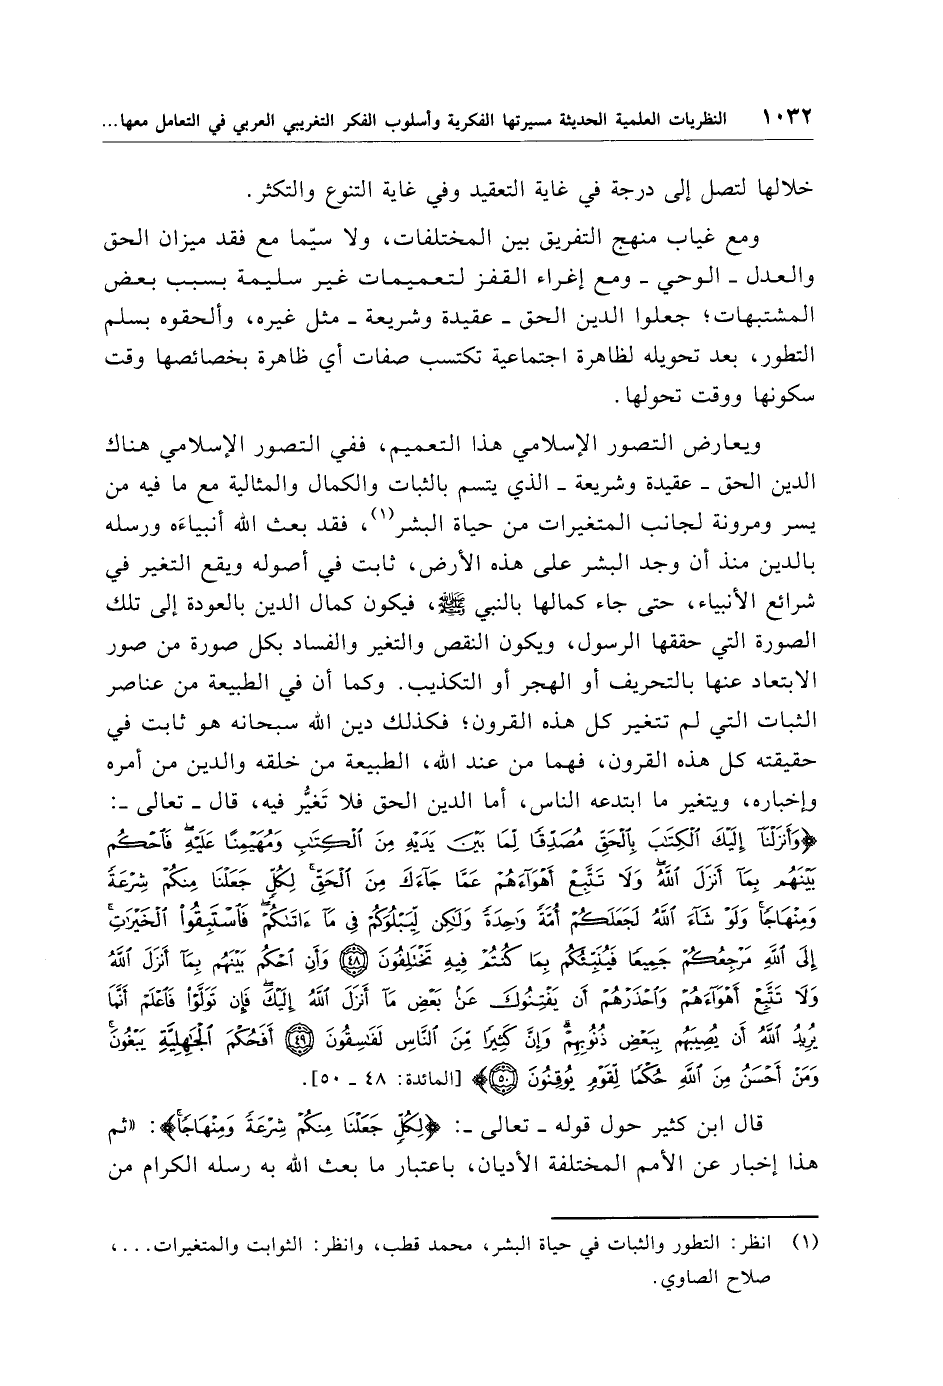 ١٠٣٢ النظريات العلمية الحديثة مسيرتها الفكرية وأسلوب الفكر التغريبي العربي في التعامل معها...
خلالها لتصل إلى درجة في غاية التعقيد وفي غاية التنوع والتكثر.
ومع غياب منهج التفريق بين المختلفات، ولا سيّما مع فقد ميزان الحق
والعدل ـ الوحي ـ ومع إغراء القفز لتعميمات غير سليمة بسبب بعض
المشتبهات؛ جعلوا الدين الحق ـ عقيدة وشريعة ـ مثل غيره، وألحقوه بسلم
التطور، بعد تحويله لظاهرة اجتماعية تكتسب صفات أي ظاهرة بخصائصها وقت
سكونها ووقت تحولها.
ويعارض التصور الإسلامي هذا التعميم، ففي التصور الإسلامي هناك
الدين الحق ـ عقيدة وشريعة ـ الذي يتسم بالثبات والكمال والمثالية مع ما فيه من
يسر ومرونة لجانب المتغيرات من حياة البشر(١)، فقد بعث الله أنبياءَه ورسله
بالدين منذ أن وجد البشر على هذه الأرض، ثابت في أصوله ويقع التغير في
شرائع الأنبياء، حتى جاء كمالها بالنبي ﷺ، فيكون كمال الدين بالعودة إلى تلك
الصورة التي حققها الرسول، ويكون النقص والتغير والفساد بكل صورة من صور
الابتعاد عنها بالتحريف أو الهجر أو التكذيب. وكما أن في الطبيعة من عناصر
الثبات التي لم تتغير كل هذه القرون؛ فكذلك دين الله سبحانه هو ثابت في
حقيقته كل هذه القرون، فهما من عند الله، الطبيعة من خلقه والدين من أمره
وإخباره، ويتغير ما ابتدعه الناس، أما الدين الحق فلا تَغيُّر فيه، قال ـ تعالى ـ:
﴿وَأَنزَلْنَآ إِلَيْكَ ٱلْكِتَٰبَ بِٱلْحَقِّ مُصَدِّقًا لِّمَا بَيْنَ يَدَيْهِ مِنَ ٱلْكِتَٰبِ وَمُهَيْمِنًا عَلَيْهِ ۖ فَٱحْكُم
بَيْنَهُم بِمَآ أَنزَلَ ٱللَّهُ ۖ وَلَا تَتَّبِعْ أَهْوَآءَهُمْ عَمَّا جَآءَكَ مِنَ ٱلْحَقِّ ۚ لِكُلٍّ جَعَلْنَا مِنكُمْ شِرْعَةً
وَمِنْهَاجًا ۚ وَلَوْ شَآءَ ٱللَّهُ لَجَعَلَكُمْ أُمَّةً وَٰحِدَةً وَلَٰكِن لِّيَبْلُوَكُمْ فِى مَآ ءَاتَىٰكُمْ ۖ فَٱسْتَبِقُوا۟ ٱلْخَيْرَٰتِ ۚ
إِلَى ٱللَّهِ مَرْجِعُكُمْ جَمِيعًا فَيُنَبِّئُكُم بِمَا كُنتُمْ فِيهِ تَخْتَلِفُونَ ٤٨ وَأَنِ ٱحْكُم بَيْنَهُم بِمَآ أَنزَلَ ٱللَّهُ
وَلَا تَتَّبِعْ أَهْوَآءَهُمْ وَٱحْذَرْهُمْ أَن يَفْتِنُوكَ عَنۢ بَعْضِ مَآ أَنزَلَ ٱللَّهُ إِلَيْكَ ۖ فَإِن تَوَلَّوْا۟ فَٱعْلَمْ أَنَّمَا
يُرِيدُ ٱللَّهُ أَن يُصِيبَهُم بِبَعْضِ ذُنُوبِهِمْ ۗ وَإِنَّ كَثِيرًا مِّنَ ٱلنَّاسِ لَفَٰسِقُونَ ٤٩ أَفَحُكْمَ ٱلْجَٰهِلِيَّةِ يَبْغُونَ ۚ
وَمَنْ أَحْسَنُ مِنَ ٱللَّهِ حُكْمًا لِّقَوْمٍ يُوقِنُونَ ٥٠﴾ [المائدة: ٤٨ ـ ٥٠].
قال ابن كثير حول قوله ـ تعالى ـ: ﴿لِكُلٍّ جَعَلْنَا مِنكُمْ شِرْعَةً وَمِنْهَاجًا ۚ﴾: «ثم
هذا إخبار عن الأمم المختلفة الأديان، باعتبار ما بعث الله به رسله الكرام من
(١) انظر: التطور والثبات في حياة البشر، محمد قطب، وانظر: الثوابت والمتغيرات...،
صلاح الصاوي.